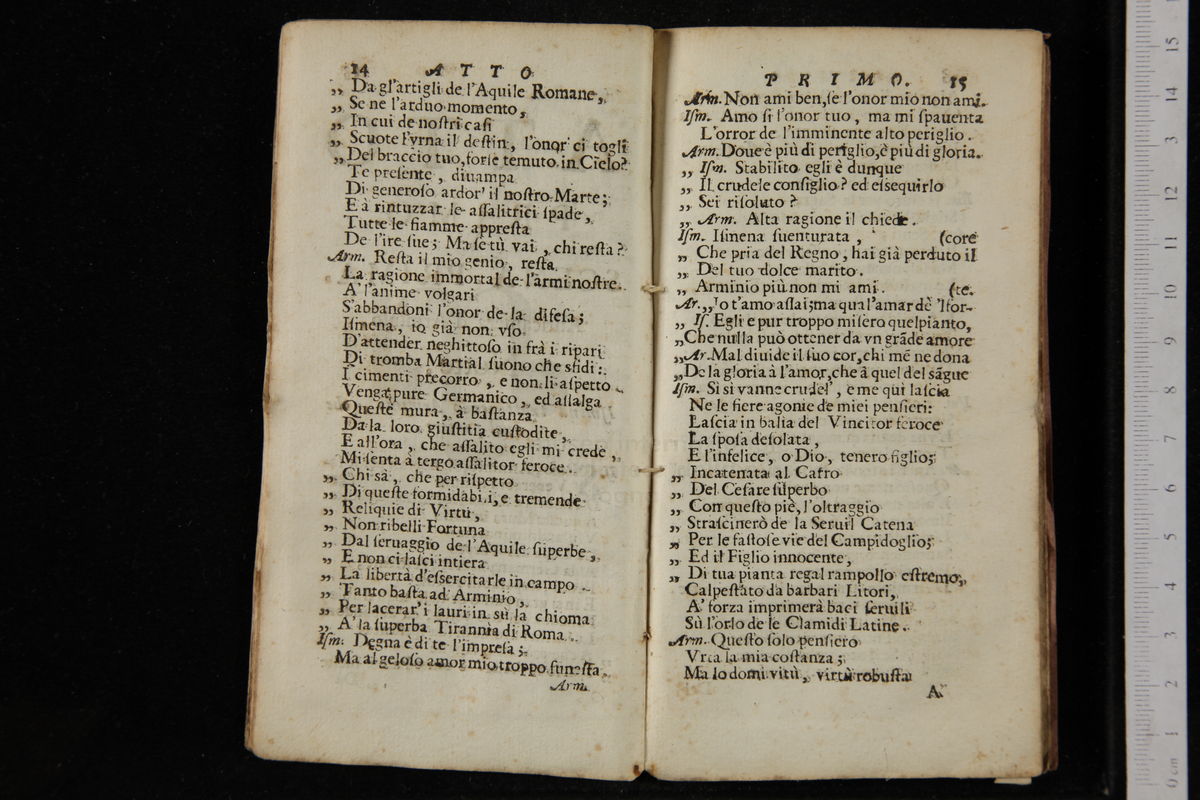 14 ATTO
„ Da gl'artigli de l'Aquile Romane,
„ Se ne l'arduo momento,
„ In cui de nostri casi
„ Scuote l'vrna il destin, l'onor ci togli
„ Del braccio tuo, forse temuto in Cielo?
Te presente, diuampa
Di generoso ardor' il nostro Marte;
E à rintuzzar le assalitrici spade,
Tutte le fiamme appresta
De l'ire sue; Ma se tù vai, chi resta?
Arm. Resta il mio genio, resta
La ragione immortal de l'armi nostre.
A' l'anime volgari
S'abbandoni l'onor de la difesa;
Ismena, io già non vso
D'attender neghittoso in frà i ripari
Di tromba Martial suono che sfidi:
I cimenti precorro, e non li aspetto.
Venga pure Germanico, ed assalga
Queste mura, à bastanza
Da la loro giustitia custodite,
E all'ora, che assalito egli mi crede,
Mi senta à tergo assalitor feroce.
„ Chi sà, che per rispetto
„ Di queste formidabili, e tremende
„ Reliquie di Virtù,
„ Non ribelli Fortuna
„ Dal seruaggio de l'Aquile superbe,
„ E non ci lasci intiera
„ La libertà d'essercitarle in campo.
„ Tanto basta ad Arminio,
„ Per lacerar' i lauri in sù la chioma
„ A' la superba Tirannia di Roma.
Ism. Degna è di te l'impresa;
Ma al geloso amor mio troppo funesta,
Arm.
PRIMO. 15
Arm. Non ami ben, se l'onor mio non ami.
Ism. Amo sì l'onor tuo, ma mi spauenta
L'orror de l'imminente alto periglio.
Arm. Doue è più di periglio, è più di gloria.
„ Ism. Stabilito egli è dunque
„ Il crudele consiglio? ed essequirlo
„ Sei risoluto?
„ Arm. Alta ragione il chiede.
Ism. Ismena suenturata, (core
„ Che pria del Regno, hai già perduto il
„ Del tuo dolce marito.
„ Arminio più non mi ami. (te.
Ar. „ Io t'amo assai; ma qual'amar dè 'l for-
„ Is. Egli e pur troppo misero quel pianto,
„ Che nulla può ottener da vn grãde amore
„ Ar. Mal diuide il suo cor, chi mẽ ne dona
„ De la gloria à l'amor, che à quel del sãgue
Ism. Sì sì vanne crudel', e me qui lascia
Ne le fiere agonie de miei pensieri:
Lascia in balia del Vincitor feroce
La sposa desolata,
E l'infelice, o Dio, tenero figlio;
„ Incatenata al Carro
„ Del Cesare superbo
„ Con questo piè, l'oltraggio
„ Strascinerò de la Seruil Catena
„ Per le fastose vie del Campidoglio;
„ Ed il Figlio innocente,
„ Di tua pianta regal rampollo estremo,
Calpestato da barbari Litori,
A' forza imprimerà baci seruili
Sù l'orlo de le Clamidi Latine.
Arm. Questo solo pensiero
Vrta la mia costanza;
Ma lo domi vitù, virtù robusta
A'